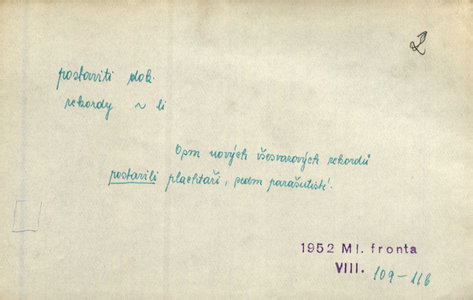 postaviti dok.
rekordy ~ li
Osm nových všesvazových rekordů
postavili plachtaři, sedm parašutisté.
1952 Ml. fronta
VIII. 109–116